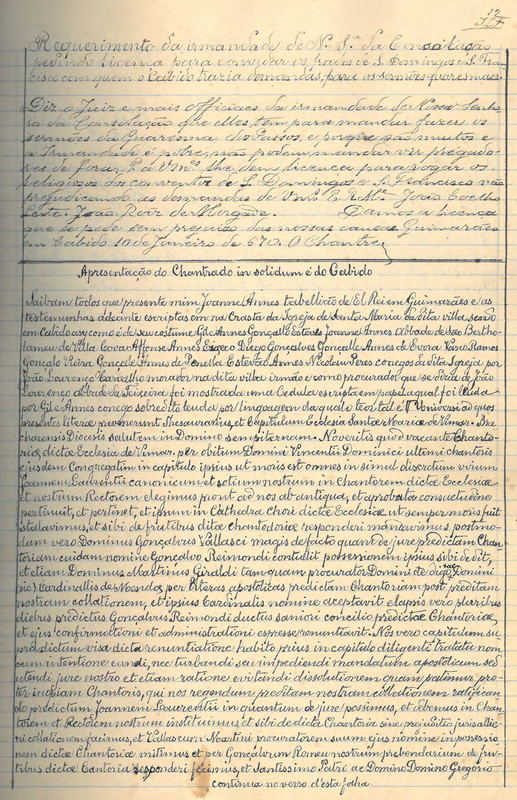 12
Requerimento da irmandade de N. Sª da Consolação
pedindo licença para convidar os frades de S. Domingos e S. Fran
cisco com quem o Cabido trazia demandas, para os sermões quaresmaes.
Diz o Juiz e mais Officiaes da irmandade de Nossa Senho
ra da Consolação que elles tem para mandar fazer os
sermões da Quaresma dos Passos, e porque são muitos e
a Irmandade é pobre, não podem mandar vir prégado-
res de fora, P. a Vmces lhe dem licença para rogar os
religiosos dos conventos de S. Domingos e S. Francisco não
prejudicando as demandas de Vmces E. R. Mce João Coelho
Leste. João Roiz de Morgade. Damos a licença
que se pede sem prejuizo das nossas causas Guimarães
em Cabido 10 de Janeiro de 670. O Chantre,
Apresentação do Chantrado in solidum é do Cabido
Saibam todos que presente mim Joanne Annes tabellião de El Rei em Guimarães e as
testemunhas adeante escriptas em na Crasta da Igreja de Santa Maria da dita villa sendo
em Cabido assy como é de seu costume Gil Annes Gonçalle Esteves Joanne Annes abbade de São Bertho-
lameu de Villa Cova Affonse Annes Diego Gonçalves Gonçalle Annes de Evora Vasco Ramos
Gonçalo Vieira Gonçale Annes de Penella Estevão Annes Nicoleu Peres conegos da dita Igreja por
João Lourenço Carvalho morador na dita villa irmão e como procurador que se dizia de João
Lourenço abbade da Teixeira foi mostrada uma Cedula escripta em papel a qual foi lida
por Gil Annes conego sobredito leuda por lingoagem da qual o teor tal é Universi ad quos
presentes literæ pervenerint Thesaurarius, et Capitulum Ecclesiæ Sanctæ Mariæ de Vimar. Bra
charensis Diocesis salutem in Domino sempiternam. Noveritis quod vacante Chanto-
ria dictæ Ecclesiæ de Vimar. per obitum Domini Vincentii Dominici ultimi chantoris
ejusdem Congregatim in capitulo ipsius ut moris est omnes in simul discretum virum
Joannem Laurentii canonicum et sotium nostrum in Chantorem dictæ Ecclesiæ
et nostrum Rectorem elegimus prout ad nos ab antiqua, et aprobata consuetudine
pertinuit, et pertinet, et ipsum in Cathedra Chori dictæ Ecclesiæ ut semper moris fuit
stadavimus, et sibi de fructibus dictæ chantoriæ responderi mandavimus postmo-
dum vero Dominus Gonçalvus Vallasci magis de facto quam de jure predictam Chan-
toriam cuidam nomine Goncalvo Raimondi contullit possessionem ipsius sibi dedit,
et etiam Dominus Martinus Giraldi tamquam procurator Domini
Cardinallis de Mendo, per literas apostolicas predictam Chantoriam post preditam
nostram collationem, et ipsius Cardinalis nomine aceptavit elapsis vero pluribus
diebus predictus Gonçalvus Reimondi ductus saniori concilio predictæ Chantoriæ,
et ejus confirmationi et administrationi espresse renuntiavit. Nos vero capitulum su
pradictum visa dicta renuntiatione habito prius in capitulo diligenti tratatu non
cum intentione eundi, nec turbandi seu impediendi mandatum apostolicum sed
utendi jure nostro et etiam ratione evitandi dissolutionem quam patimur pro
ter inopiam Chantoris, qui nos regendum preditam nostram collationem ratifican
do predictum Joannem Laurentii in quantum de jure possimus, et debemus in Chan
torem et Rectorem nostrum instituimus et sibi de dicta Chantoria sine prejuditio juris allie-
ni collationem facimus, et Vallascum Martini procuratorem suum ejus nomine in possessio
nem dictæ Chantoriæ mitimus et per Gonçalvum Romeu nostrum prebendarium de fru-
tibus dictæ Cantoria responderi fecimus, et Santissimo Patri ac Domino Domino Gregorio
continua no verso d'esta folha